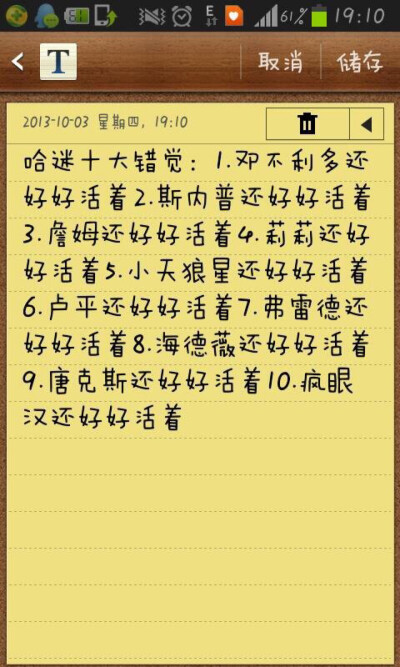 E 61% 19:10
T 取消 储存
2013-10-03 星期四, 19:10
哈迷十大错觉：1.邓不利多还
好好活着2.斯内普还好好活着
3.詹姆还好好活着4.莉莉还好
好活着5.小天狼星还好好活着
6.卢平还好好活着7.弗雷德还
好好活着8.海德薇还好好活着
9.唐克斯还好好活着10.疯眼
汉还好好活着